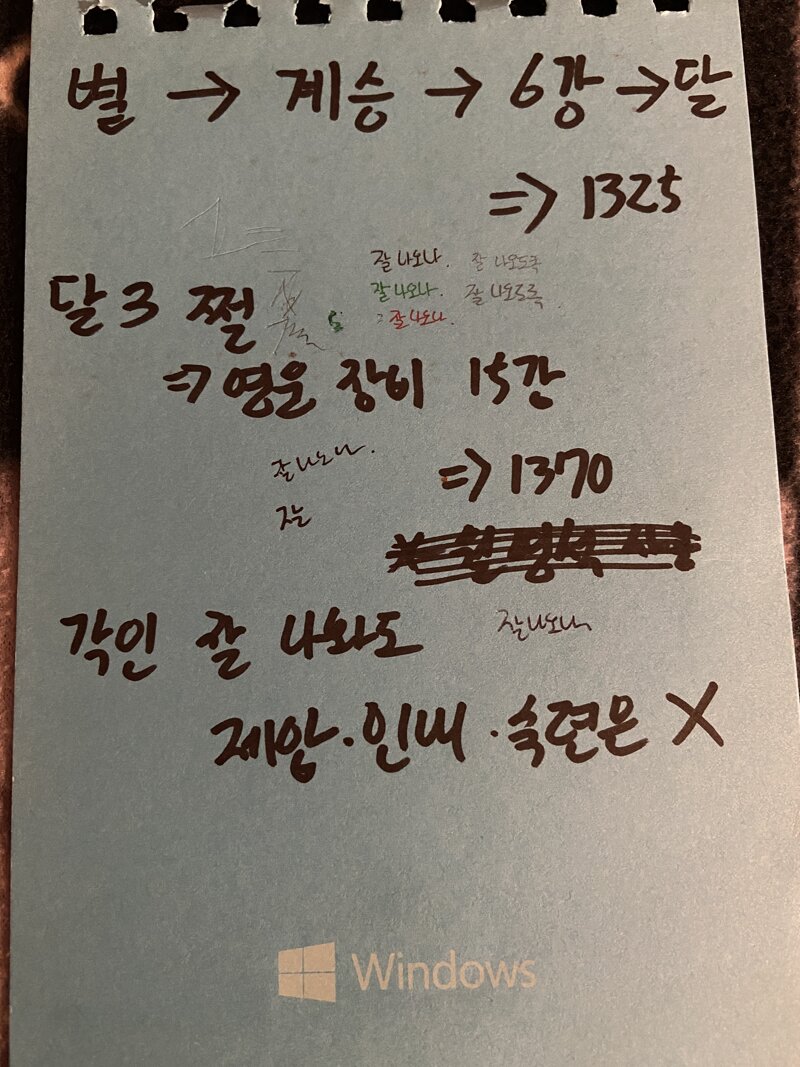 별 → 계승 → 6강 → 달
=> 1325
잘 나오나. 잘 나오도록
잘 나오나. 잘 나오도록
잘 나오나.
달 3 쩔
=> 영웅 장비 15강
잘 나오나.
=> 1370
잘
각인 잘 나와도
잘 나오나
제압·인내·숙련은 X
Windows